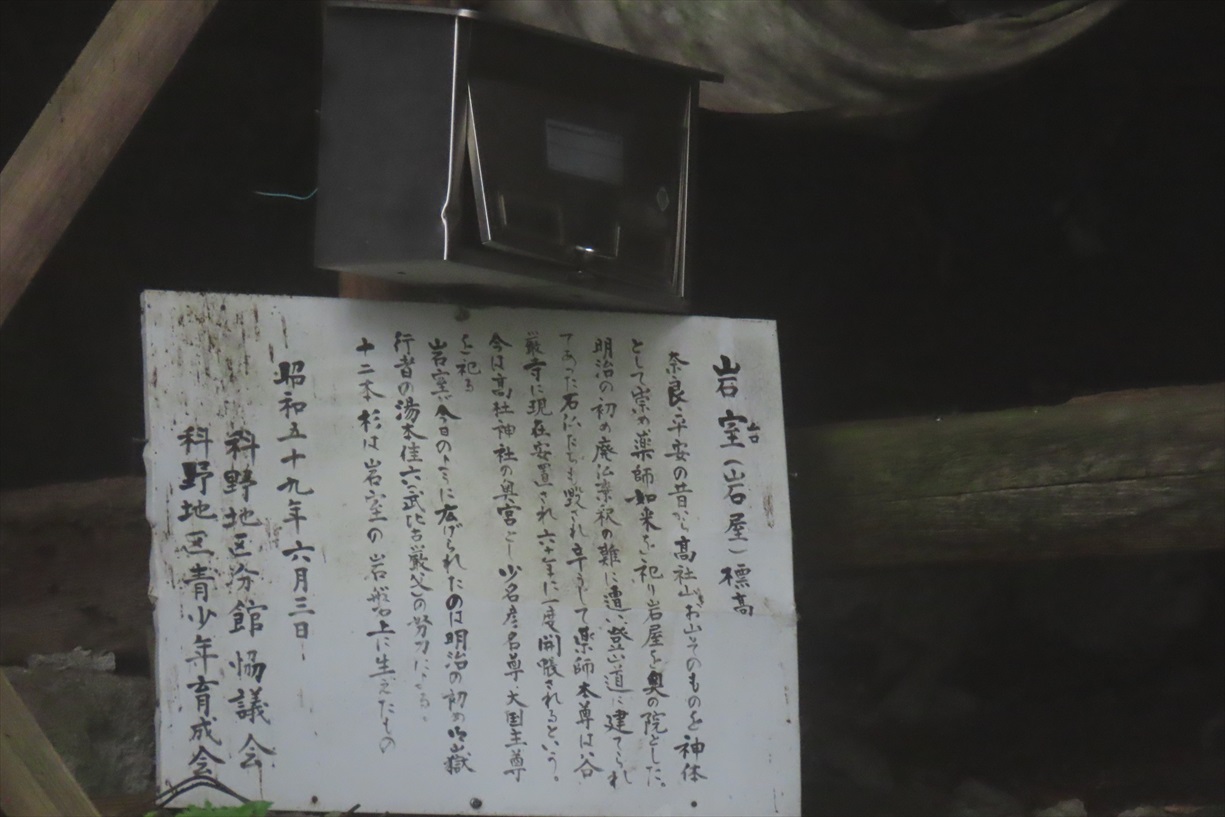 岩室(岩屋)標高
奈良、平安の昔から高社山がお山そのものを神体
として崇め薬師如来をご祀り岩屋を奥の院とした。
明治の初め廃仏棄釈の難に遭い登山道に建てられ
てあった石仏たちも毀され辛うじて薬師本尊は谷
厳寺に現在安置され六十年に一度開帳されるという。
今は高杜神社の奥宮とし少名彦名尊、大国主尊
を祀る
岩室が今日のように広げられたのは明治の初め御嶽
行者の湯本佳六、武比古厳父の努力による。
十二本杉は岩室の岩盤上に生えたもの
昭和五十九年六月三日
科野地区分館協議会
科野地区青少年育成会